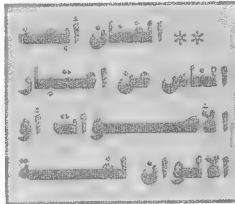 ** الفنان أبعد
الناس عن اعتبار
الأصوات أو
الألوان لغة